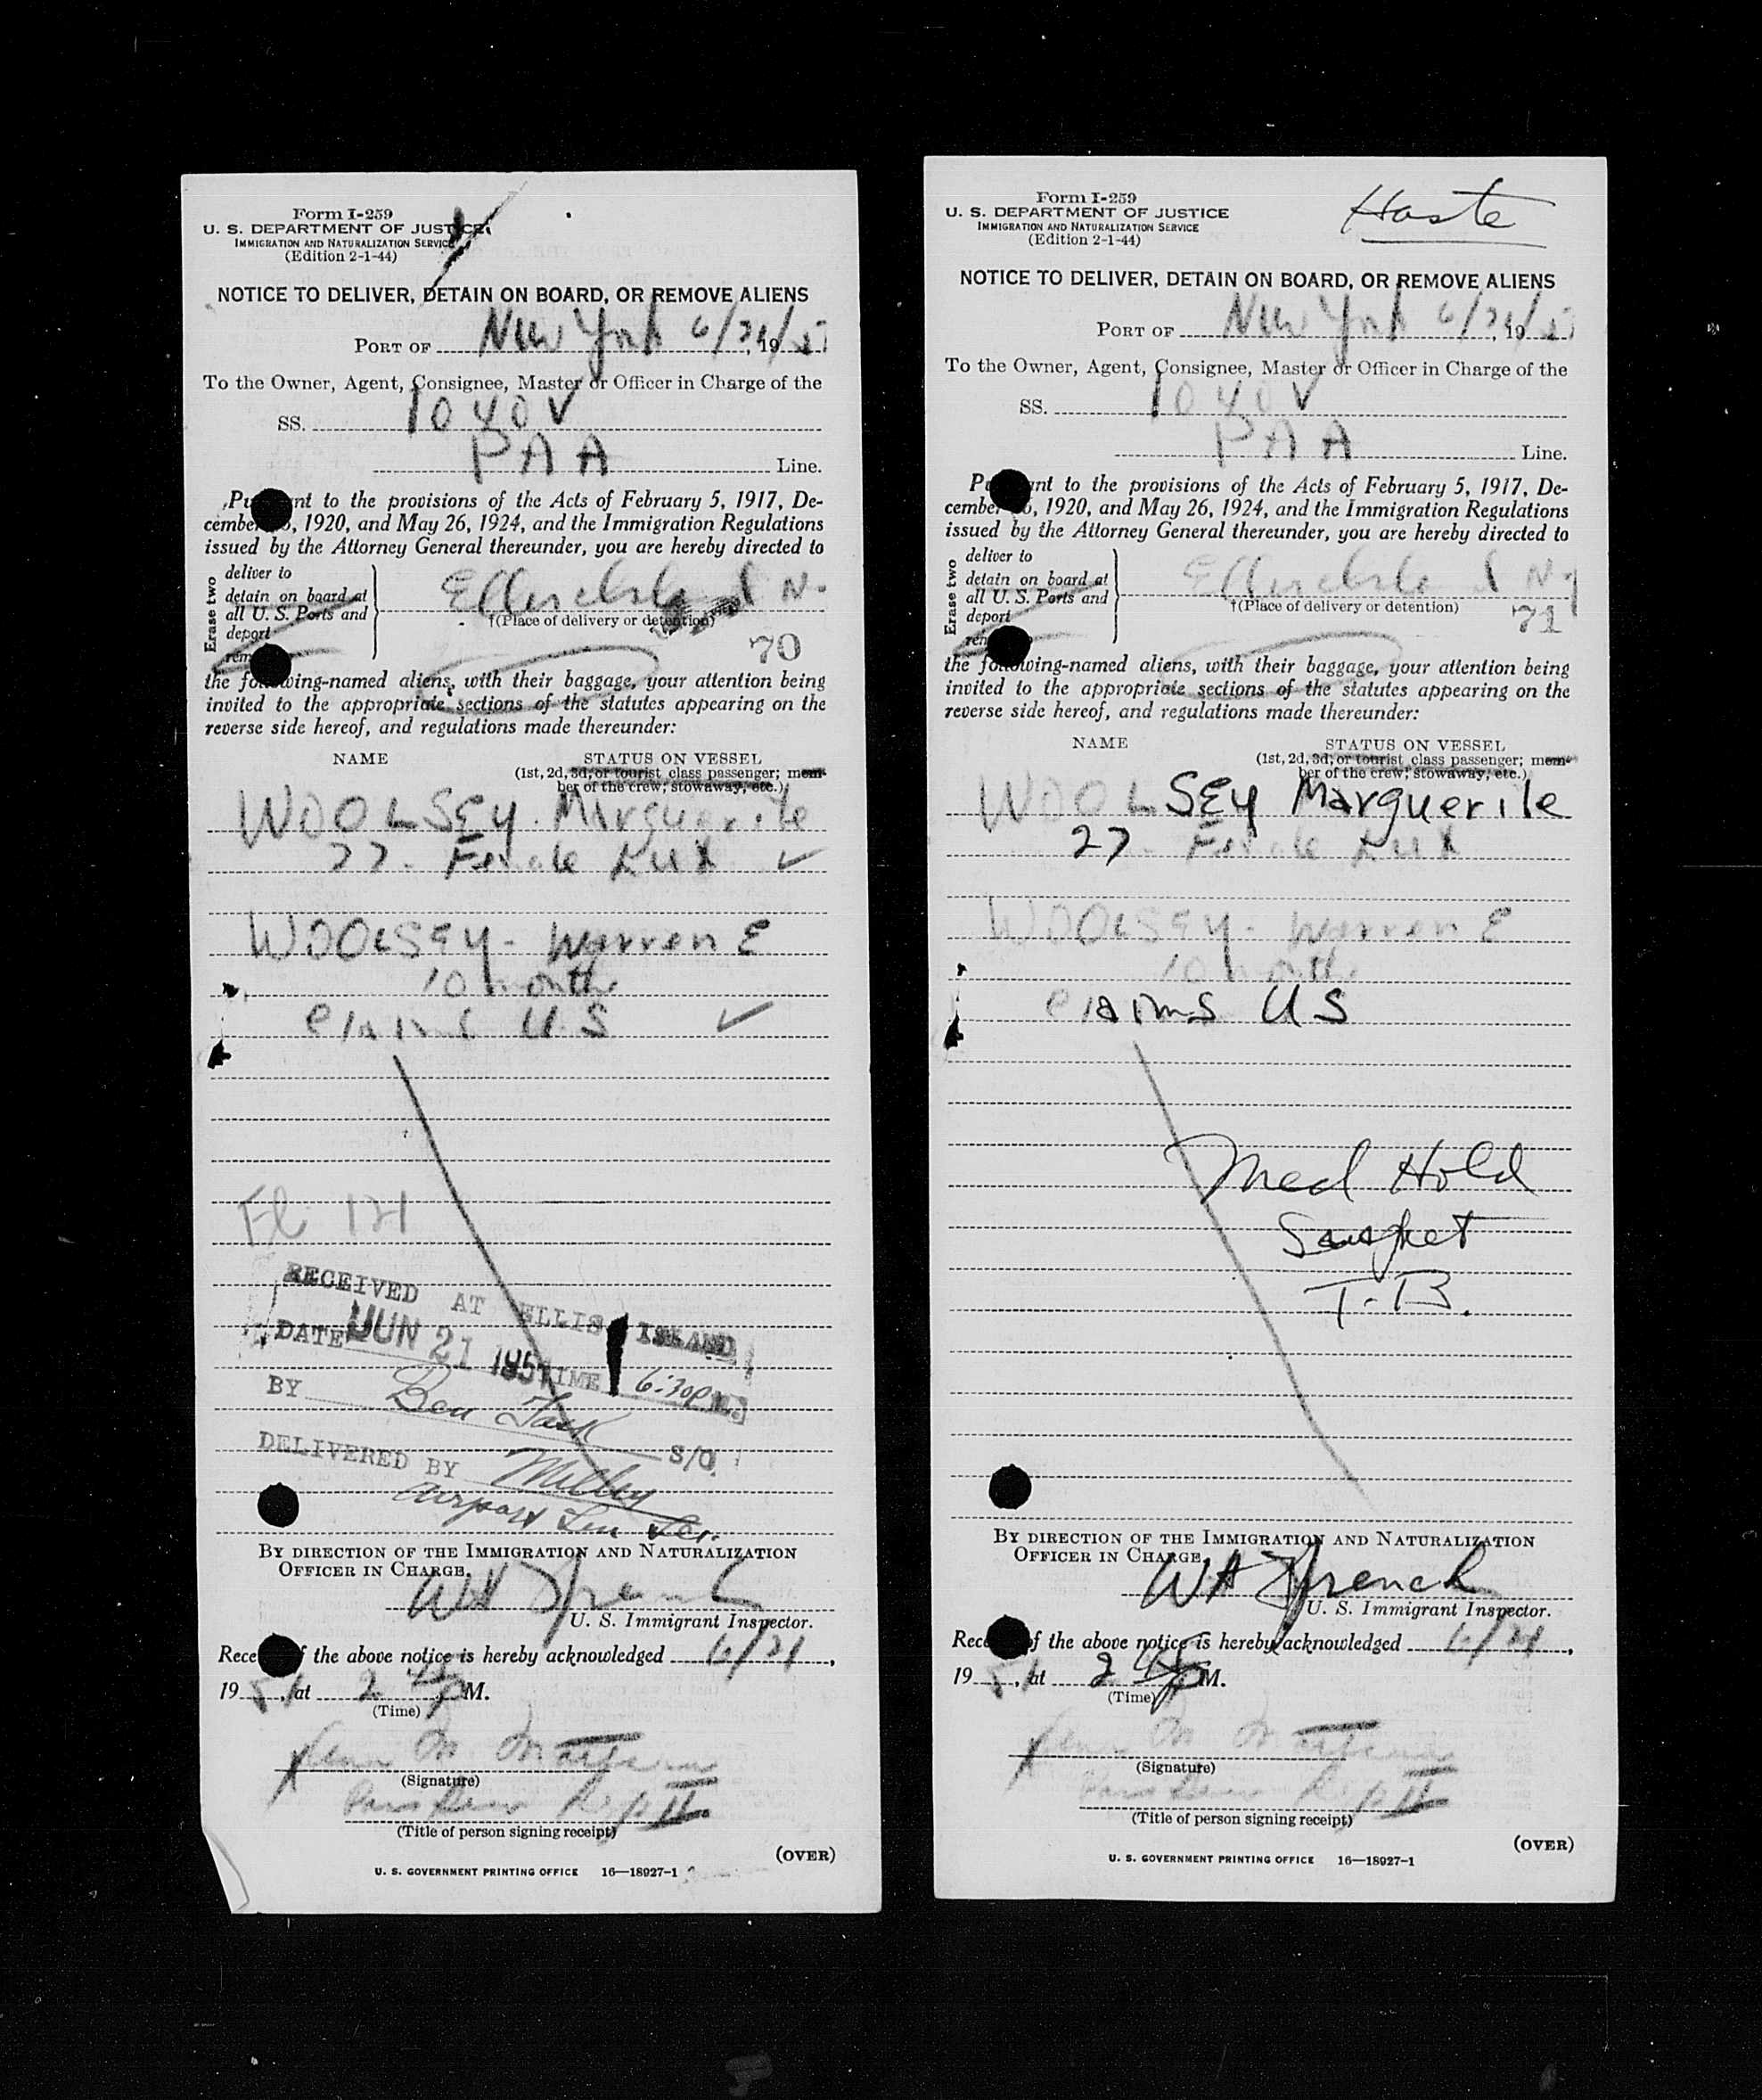 Form I-259
U. S. DEPARTMENT OF JUSTICE
IMMIGRATION AND NATURALIZATION SERVICE
(Edition 2-1-44)
NOTICE TO DELIVER, DETAIN ON BOARD, OR REMOVE ALIENS
PORT OF New York 6/21, 1951
To the Owner, Agent, Consignee, Master or Officer in Charge of the
SS. 1040V
PAA Line.
Pursuant to the provisions of the Acts of February 5, 1917, De-
cember 26, 1920, and May 26, 1924, and the Immigration Regulations
issued by the Attorney General thereunder, you are hereby directed to
Erase two
deliver to
detain on board at
all U. S. Ports and
deport
remove
Ellis Island N.
†(Place of delivery or detention)
70
the following-named aliens, with their baggage, your attention being
invited to the appropriate sections of the statutes appearing on the
reverse side hereof, and regulations made thereunder:
NAME STATUS ON VESSEL
(1st, 2d, 3d, or tourist class passenger; mem-
ber of the crew; stowaway, etc.)
WOOLSEY. Marguerite
27. Female LUX ✓
WOOLSEY - Warren E
10 months
claims U.S ✓
RECEIVED AT ELLIS ISLAND
DATE JUN 21 1951 TIME 6:30 P.M.
BY Ben S/O
DELIVERED BY
Airport
BY DIRECTION OF THE IMMIGRATION AND NATURALIZATION
OFFICER IN CHARGE.
WH French
U. S. Immigrant Inspector.
Receipt of the above notice is hereby acknowledged 6/21,
1951, at 2 45 P M.
(Time)
(Signature)
(Title of person signing receipt)
(OVER)
U. S. GOVERNMENT PRINTING OFFICE 16—18927-1
Form I-259
U. S. DEPARTMENT OF JUSTICE
IMMIGRATION AND NATURALIZATION SERVICE
(Edition 2-1-44)
Haste
NOTICE TO DELIVER, DETAIN ON BOARD, OR REMOVE ALIENS
PORT OF New York 6/21, 1951
To the Owner, Agent, Consignee, Master or Officer in Charge of the
SS. 1040V
PAA Line.
Pursuant to the provisions of the Acts of February 5, 1917, De-
cember 26, 1920, and May 26, 1924, and the Immigration Regulations
issued by the Attorney General thereunder, you are hereby directed to
Erase two
deliver to
detain on board at
all U. S. Ports and
deport
remove
Ellis Island NY
†(Place of delivery or detention)
71
the following-named aliens, with their baggage, your attention being
invited to the appropriate sections of the statutes appearing on the
reverse side hereof, and regulations made thereunder:
NAME STATUS ON VESSEL
(1st, 2d, 3d, or tourist class passenger; mem-
ber of the crew; stowaway, etc.)
WOOLSEY Marguerite
27 Female LUX
WOOLSEY - Warren E
10 months
claims US
Med Hold
T.B.
BY DIRECTION OF THE IMMIGRATION AND NATURALIZATION
OFFICER IN CHARGE.
WH French
U. S. Immigrant Inspector.
Receipt of the above notice is hereby acknowledged 6/21,
1951, at 2 45 P M.
(Time)
(Signature)
(Title of person signing receipt)
(OVER)
U. S. GOVERNMENT PRINTING OFFICE 16—18927-1